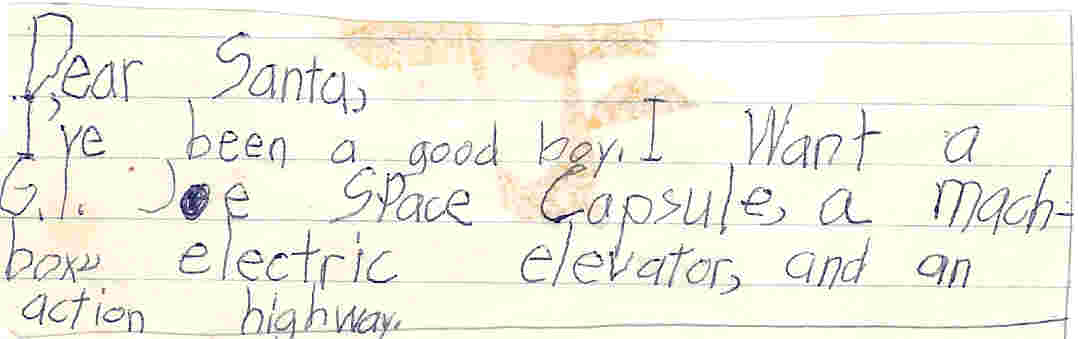 Dear Santa,
I've been a good boy. I Want a
G.I. Joe Space Capsule, a mach-
box, electric elevator, and an
action highway.